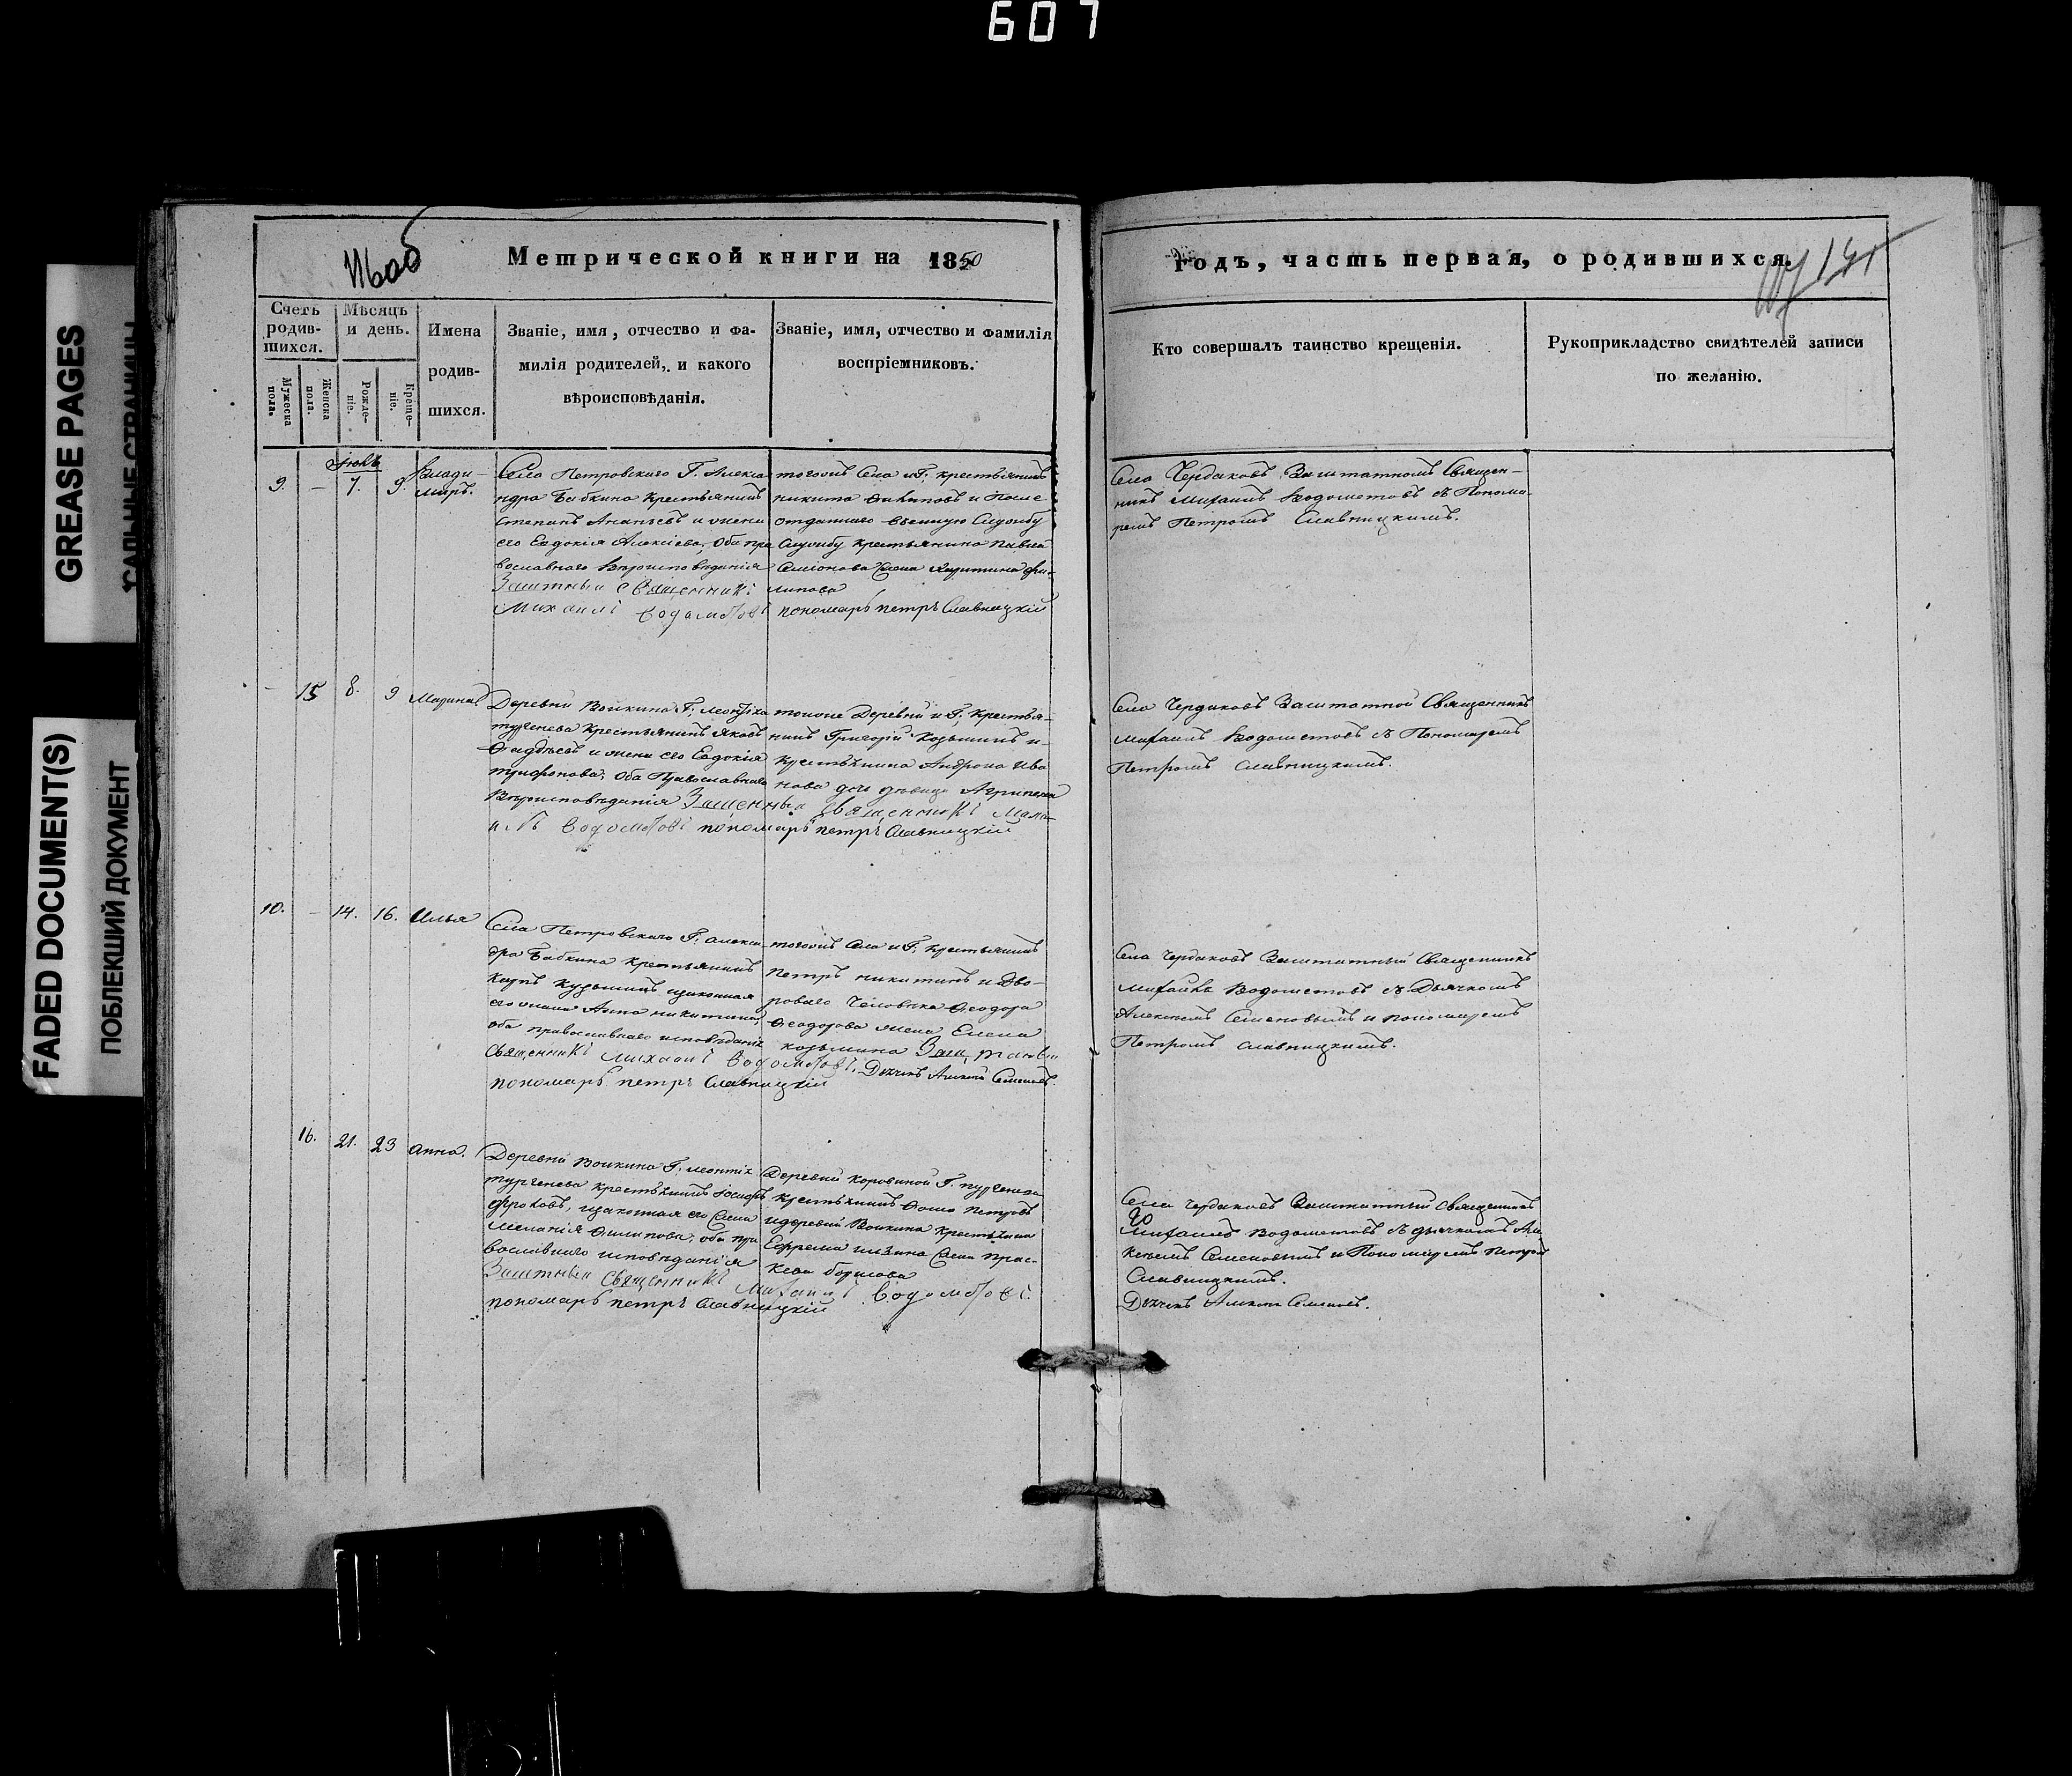 607
GREASE PAGES
FADED DOCUMENT(S)
ПОБЛЕКШИЙ ДОКУМЕНТ
116об
Метрической книги на 1850
годъ, часть первая, о родившихся.
Счетъ родив-шихся.
Мѣсяцъ и день.
Имена родив-шихся.
Званіе, имя, отчество и фа-
милія родителей, и какого
вѣроисповѣданія.
Званіе, имя, отчество и фамилія
воспріемниковъ.
Кто совершалъ таинство крещенія.
Рукоприкладство свидѣтелей записи
по желанію.
Мужеска пола.
Женска пола.
Рожде-ніе.
Креще-ніе.
9. – 7. 9. Влади-
миръ.
Села Петровскаго Г. Алекса
ндра Бабкина Крестьянинъ
Степанъ Ананьевъ и жена
его Евдокія Алексіева, Оба пра
вославнаго Вѣроисповѣданія
Заштный священникъ
Михаилъ Водометовъ
тогожъ Села и Г. крестьянинъ
никита
отданнаго Службу
Службу крестьянина Павла
липова
пономарь петръ Славницкій
Села Чердаковъ Заштатномъ Священ-
никъ Михаилъ Водометовъ съ Понома-
ремъ Петромъ Славницкимъ.
– 15 8. 9 Марина
Деревни Воикина Г. Леонтіа
тургенева Крестьянинъ Яковъ
Фаддѣевъ и жена его Евдокія
трифонова, Оба Православнаго
Вѣроисповѣданія
тоиоже Деревни и Г. Крестья-
нинъ Григорій Козьминъ и
крестьянина Андрона Ива
нова дочь дѣвица Агрипена
Водометовъ пономарь петръ Славницкій
Села Чердаковъ Заштатной Священникъ
Михаилъ Водометовъ съ Пономаремъ
Петромъ Славницкимъ.
10. – 14. 16. Илья
Села Петровскаго Г. Алекса-
дра Бабкина Крестьянинъ
Карпъ Кузьминъ изаконная
его жена Анна никитина,
оба православнаго исповѣданія
Священникъ Михаилъ Водометовъ. Дьячекъ Алексѣй Семеновъ.
пономарь петръ Славницкій
тогожъ Села и Г. Крестьянинъ
Петръ никитинъ и Дво-
роваго Человѣка Ѳеодора
Ѳеодорова жена Елена
козьмина
Села Чердаковъ Заштатный Священникъ
Михаилъ Водометовъ съ Дьячкомъ
Алексѣемъ Семеновымъ и пономаремъ
Петромъ Славницкимъ.
16. 21. 23 Анна.
Деревни Воикина Г. Леонтіа
тургенева крестьянинъ Іосифъ
фроловъ, изаконная его жена
Меланія Филипова, оба пра
вославнаго исповѣданія
Заштный Священникъ Михаилъ Водометовъ.
пономарь петръ Славницкій
Деревни Коровиной Г. тургенева
крестьянинъ Фома Петровъ
идеревни Воикина Крестьянина
Ефрема жена прас-
кева борисова
Села Чердаковъ Заштатный Священникъ
Михаилъ Водометовъ съ дьячкомъ Але
ксѣемъ Семеновымъ и Пономаремъ Петромъ
Славницкимъ.
Дьячекъ Алексѣй Семеновъ.